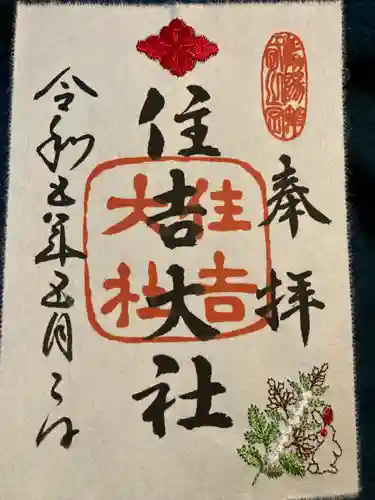 奉拝
住吉大社
住吉大社
令和五年五月二日